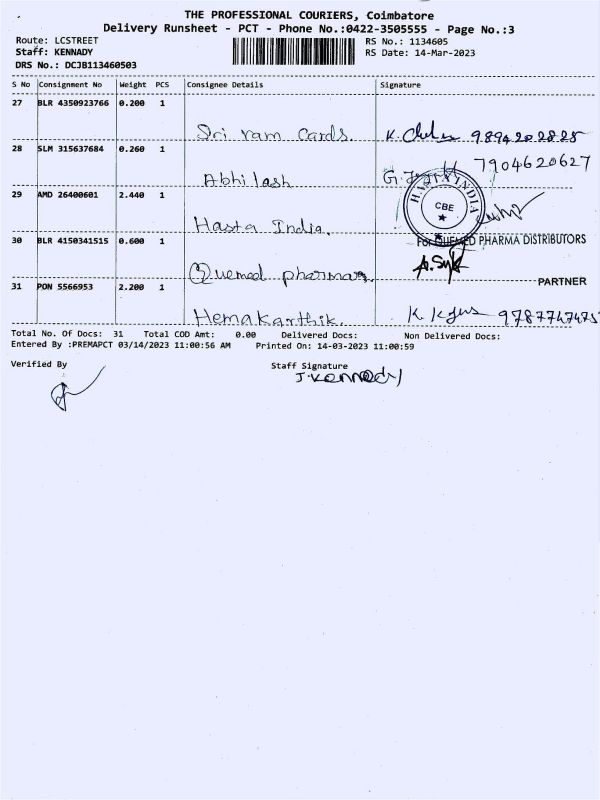 THE PROFESSIONAL COURIERS, Coimbatore
Delivery Runsheet - PCT - Phone No.:0422-3505555 - Page No.:3
Route: LCSTREET RS No.: 1134605
Staff: KENNADY RS Date: 14-Mar-2023
DRS No.: DCJB113460503
S No Consignment No Weight PCS Consignee Details Signature
27 BLR 4350923766 0.200 1
Sri ram Cards. K. 9894202825
28 SLM 315637684 0.260 1 7904620627
Abhilash G.
29 AMD 26400601 2.440 1 HASTA INDIA
CBE
Hasta India.
30 BLR 4150341515 0.600 1 For QUEMED PHARMA DISTRIBUTORS
Quemed pharma
PARTNER
31 PON 5566953 2.200 1
Hemakarthik. K 9787747475
Total No. Of Docs: 31 Total COD Amt: 0.00 Delivered Docs: Non Delivered Docs:
Entered By :PREMAPCT 03/14/2023 11:00:56 AM Printed On: 14-03-2023 11:00:59
Verified By Staff Signature
J. Kennady